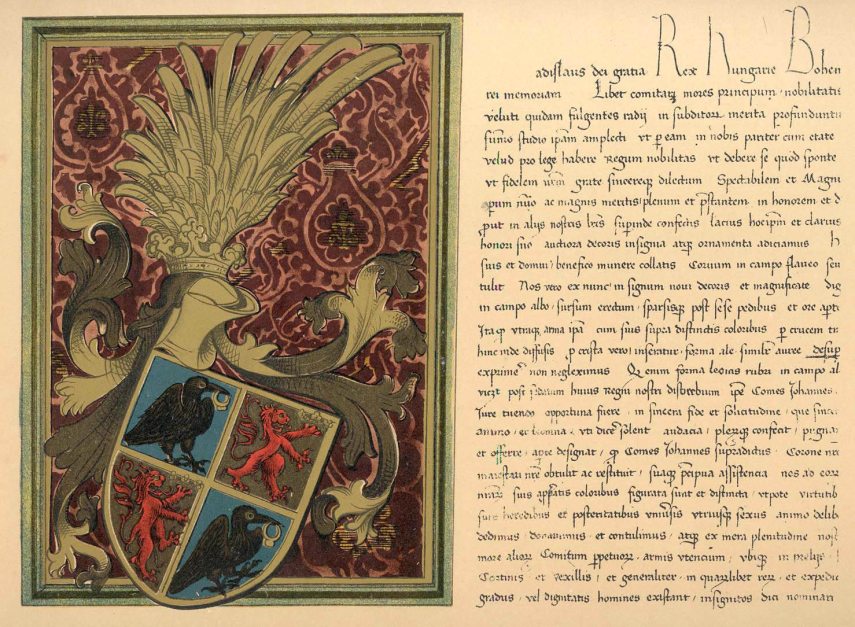 adislaus dei gratia Rex Hungarie Bohen
rei memoriam Libet comitatz mores principum · nobilitatis
veluti quidam fulgentes radij in subditorz merita profunduntu
summo studio ipam amplecti vt p eam in nobis pariter cum etate
velud pro lege habere Regum nobilitas vt debere se quod sponte
vt fidelem nrm grate sincereqz dilectum Spectabilem et Magni
ac magnis meritis plenum et pstantem in honorem et d
put in alijs nostris lris superinde confectis lacius et clarius
honori suo auctiora decoris insignia atqz ornamenta adiciamus
suis et domui benefico munere collatis Coruum in campo flaueo seu
tulit Nos vero ex nunc in signum noui decoris et magnificate dig
in campo albo sursum erectum sparsisqz post sese pedibus et ore apti
Ita qz vtraqz arma ipa cum suis supra distinctis coloribus p crucem tr
hinc inde diffusis p crista vero inseritur forma ale similr auree desup
exprime non negleximus Q enim forma leonis rubri in campo al
post huius Regni nostri disturbium ipe Comes Johannes
Jure tuendo opportuna fuere in sincera fide et solicitudine que
animo vti dici solent audacia plerqz confecit pugnas
et offerre apte designat qz Comes Johannes supradictus Corone nre
maiestati nre obtulit ac restituit suaqz pcipua assistencia nos ad coro
suis apptatis coloribus figurata sunt et distincta vtpote virtutib
suis heredibus et posteritatibus vniuersis vtriusqz sexus animo delib
dedimus donauimus et contulimus atqz ex mera plenitudine nost
more aliorz Comitum ppetuorz armis vtencium vbiqz in prelijs
Cortinis et vexillis et generaliter in quarzlibet rerz et expedic
gradus vel dignitatis homines existant insignitos dici nominari